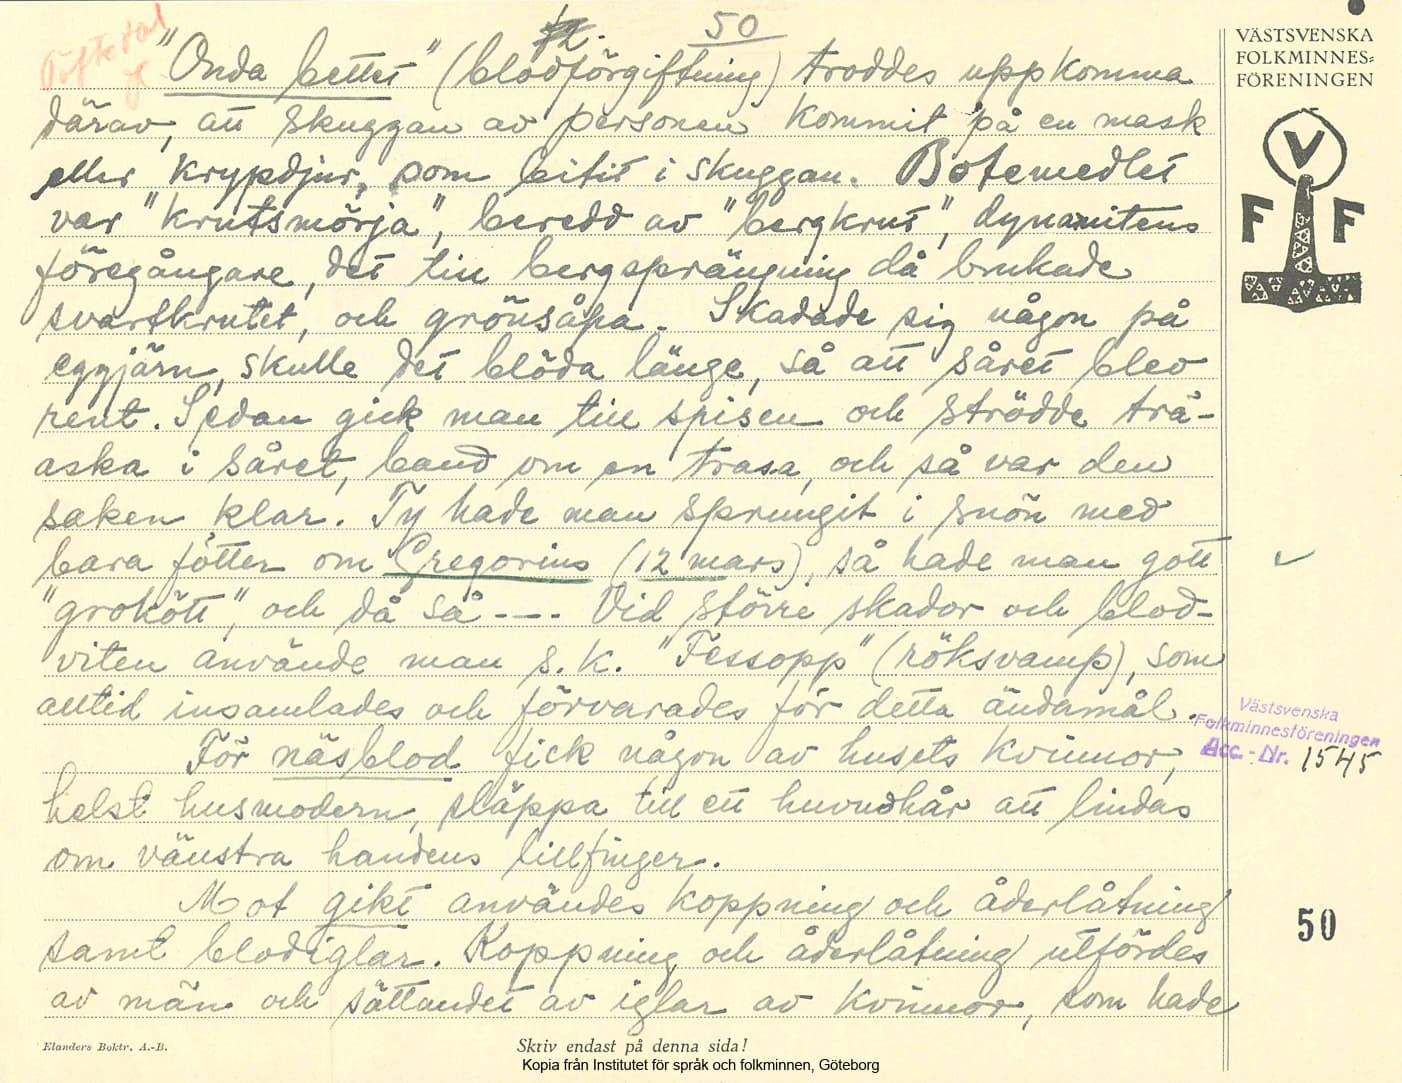 50
"Onda bettet" (blodförgiftning) troddes uppkomma
därav, att skuggan av personen kommit på en mask
eller krypdjur, som bitit i skuggan. Botemedlet
var "krutsmörja", beredd av "bergkrut", dynamitens
föregångare, det till bergsprängning då brukade
svartkrutet, och grönsåpa. Skadade sig någon på
eggjärn, skulle det blöda länge, så att såret blev
rent. Sedan gick man till spisen och strödde trä-
aska i såret, band om en trasa, och så var den
saken klar. Ty hade man sprungit i snön med
bara fötter om Gregorius (12 mars), så hade man gott
"grokött", och då så ---. Vid större skador och blod-
viten använde man s.k. "Fessopp" (röksvamp), som
alltid insamlades och förvarades för detta ändamål.
För näsblod fick någon av husets kvinnor,
helst husmodern, släppa till ett huvudhår att lindas
om vänstra handens lillfinger.
Mot gikt användes koppning och åderlåtning
samt blodiglar. Koppning och åderlåtning utfördes
av män och sättandet av iglar av kvinnor, som hade
VÄSTSVENSKA
FOLKMINNES=
FÖRENINGEN
V
F F
Västsvenska
Folkminnesföreningen
Acc.-Nr. 1545
50
Elanders Boktr. A.-B.
Skriv endast på denna sida!
Kopia från Institutet för språk och folkminnen, Göteborg